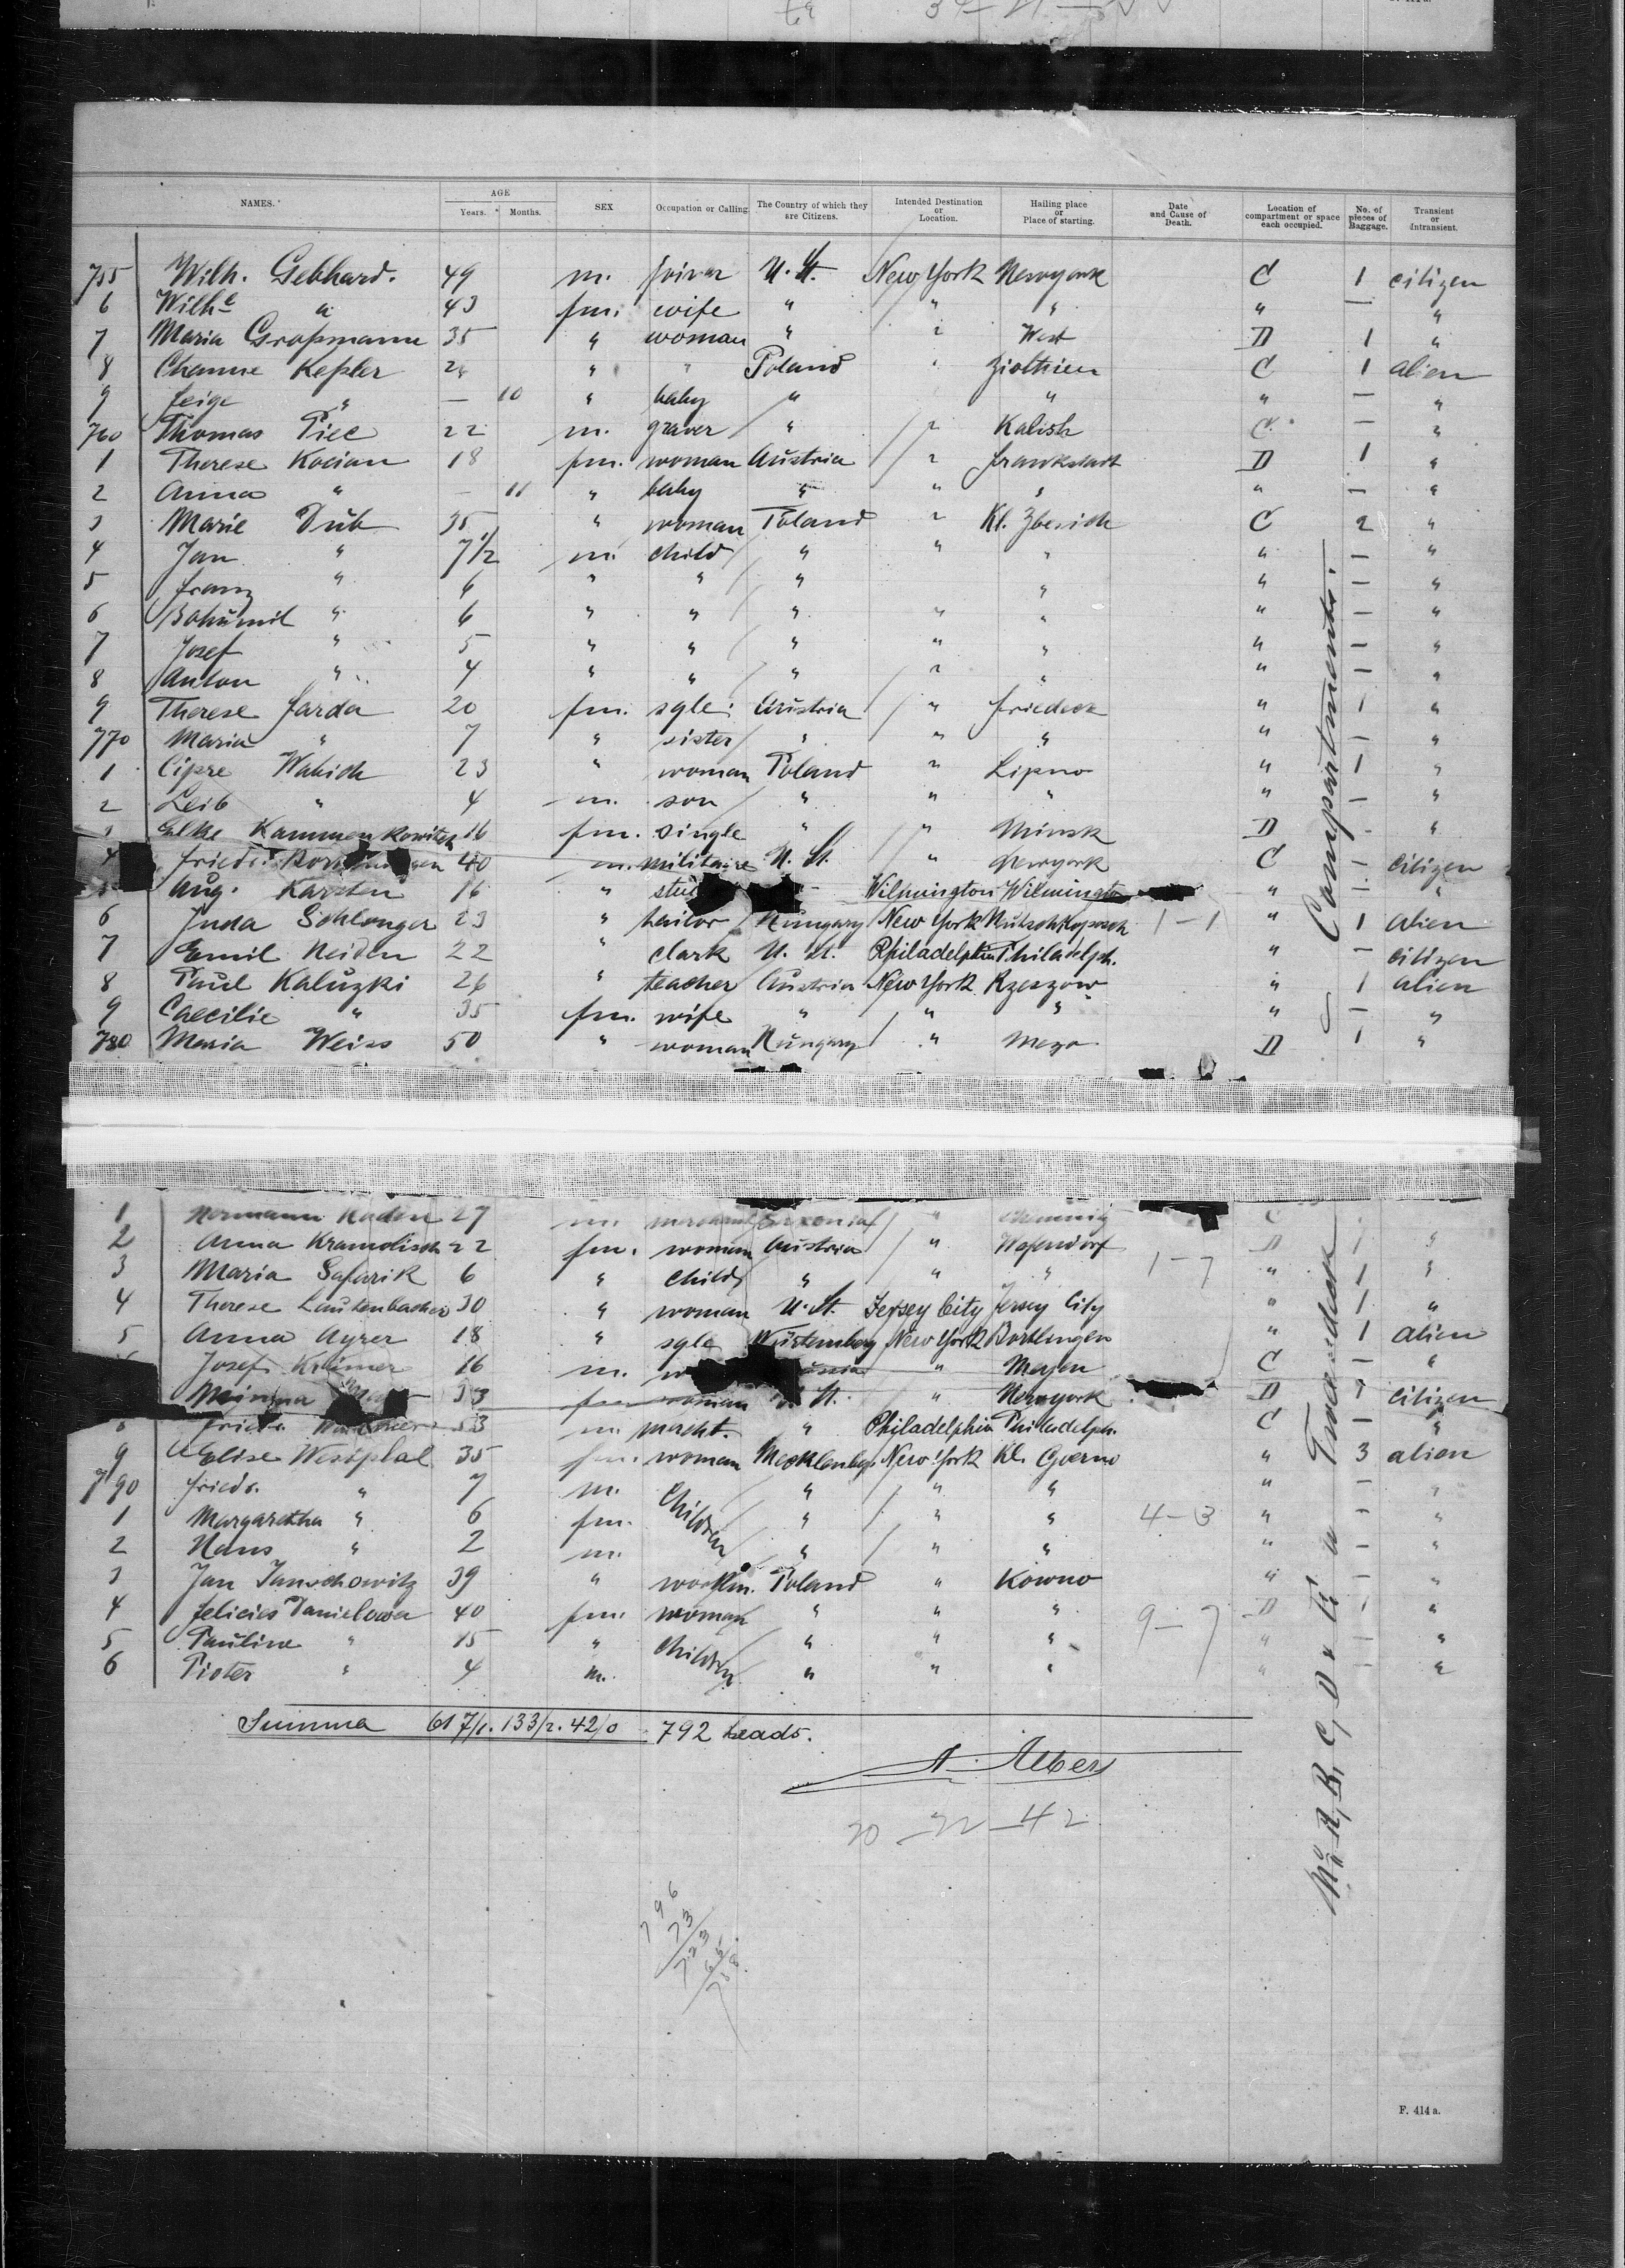 NAMES. AGE Years. Months. SEX Occupation or Calling. The Country of which they are Citizens. Intended Destination or Location. Hailing place or Place of starting. Date and Cause of Death. Location of compartment or space each occupied. No. of pieces of Baggage. Transient or Intransient.
755 Wilh. Gebhard. 49 m. U. St. New York Newyork C 1 citizen
6 Wilhe " 43 fm. wife " " " " — "
7 Maria Großmann 35 " woman " " West D 1 "
8 Channe Keßler 24 " " Poland " C 1 alien
9 Feige " — 10 " baby " " " — "
760 Thomas Piec 22 m. graver " " Kalish C. — "
1 Therese Kocian 18 fm. woman Austria " Frankstadt D 1 "
2 Anna " — 11 " baby " " " " — "
3 Marie Dub 35 " woman Poland " Kl. C 2 "
4 Jan " 7 1/2 m. child " " " " — "
5 Franz " 6 " " " " " — "
6 Bohumil " 6 " " " " " " — "
7 Josef " 5 " " " " " " — "
8 Anton " 4 " " " " " " — "
9 Therese Jarda 20 fm. sgle. Austria " Friedeck " 1 "
770 Maria " 7 " sister " " " " — "
1 Cipre 23 " woman Poland " Lipno " 1 "
2 Leib " 4 m. son " " " " — "
3 Elke Kammenkowitch 16 fm. single " " Minsk D - "
4 Friedr. 40 m. militaire U. St. " Newyork C — citizen
Aug. Karsten 16 " Wilmington Wilmington " — "
6 Juda Schlonger 23 " tailor Hungary New York 1—1 " 1 alien
7 Emil Neiden 22 " clark U. St. Philadelphia Philadelph. " — citizen
8 Paul Kaluzki 26 " teacher Austria New York Rzeszow " 1 alien
9 Caecilie " 35 fm. wife " " " " — "
780 Maria Weiss 50 " woman Hungary " Mezo D 1 "
1 Hermann Kaden 27 m. Saxonia " Chemnitz C
2 Anna Kramolisch 22 fm. woman Austria " D 1 "
3 Maria Safarik 6 " child " " " 1—7 " 1 "
4 Therese Lautenbacher 30 " woman U. St. Jersey City Jersey City " 1 "
5 Anna Ayrer 18 " sgle Würtemberg New York " 1 alien
Josef Krämer 16 m. " Mayen C — "
33 fm woman St. " Newyork D 1 citizen
8 Friedr. 53 m. mercht. " Philadelphia Philadelph. C — "
9 Elise Westphal 35 fm. woman Mecklenbg. New York Kl. " 3 alien
790 Friedr. " 7 m. Children " " " " — "
1 Margaretha " 6 fm. " " " 4—3 " — "
2 Hans " 2 m. " " " " — "
3 Jan Janschowitz 39 " workm. Poland " Kowno " — "
4 Danielowa 40 fm. woman " " " 9—7 D 1 "
5 Pauline " 15 " Children " " " " — "
6 Pioter " 4 m. " " " " — "
Summa 617/1. 133/2. 42/0 792 heads.
A. Albers
20—22—42
796
73
723
65
Compartments.
F. 414 a.